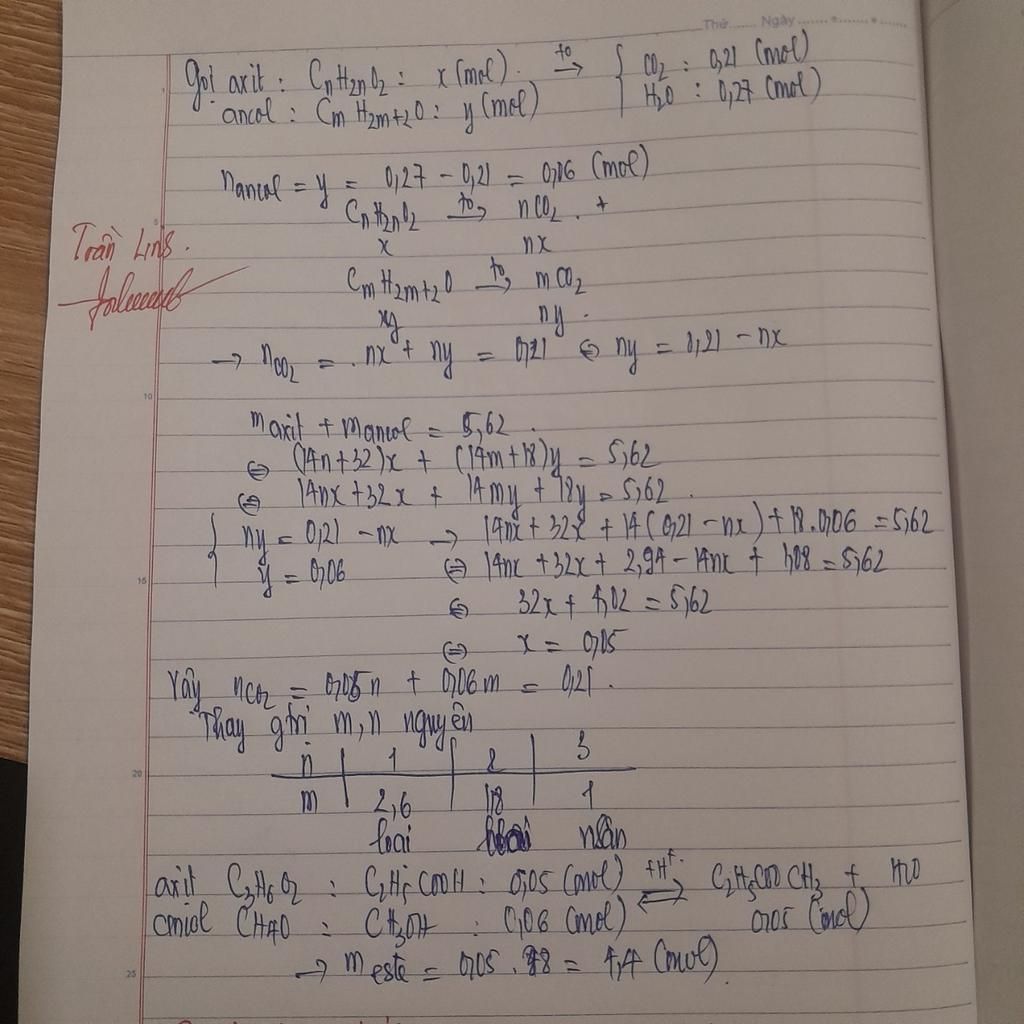 Thứ ....... Ngày .......
Gọi axit : CnH2nO2 : x (mol) t0→ { CO2 : 0,21 (mol)
ancol : CmH2m+2O : y (mol) H2O : 0,27 (mol)
nancol = y = 0,27 - 0,21 = 0,06 (mol)
CnH2nO2 t0→ nCO2 . +
x nx
Trần Linh.
CmH2m+2O t0→ mCO2
xy ny .
→ nCO2 = . nx + ny = 0,21 ⇔ ny = 0,21 - nx
10
maxit + mancol = 5,62 .
⇔ (14n+32)x + (14m+18)y = 5,62
⇔ 14nx + 32x + 14my + 18y = 5,62 .
{ ny = 0,21 - nx → 14nx + 32x + 14(0,21 - nx) + 18.0,06 = 5,62
y = 0,06 ⇔ 14nx + 32x + 2,94 - 14nx + 1,08 = 5,62
15
⇔ 32x + 4,02 = 5,62
⇔ x = 0,05
Vậy nCO2 = 0,05n + 0,06m = 0,21 .
Thay gtri m, n nguyên
n | 1 | 2 | 3
20
m | 2,6 | 1,8 | 1
loại loại nhận
axit C3H6O2 : C2H5COOH : 0,05 (mol) +H+ ⇌ C2H5COOCH3 + H2O
CH4O : CH3OH : 0,06 (mol) 0,05 (mol)
→ meste = 0,05 . 88 = 4,4 (mol)
25